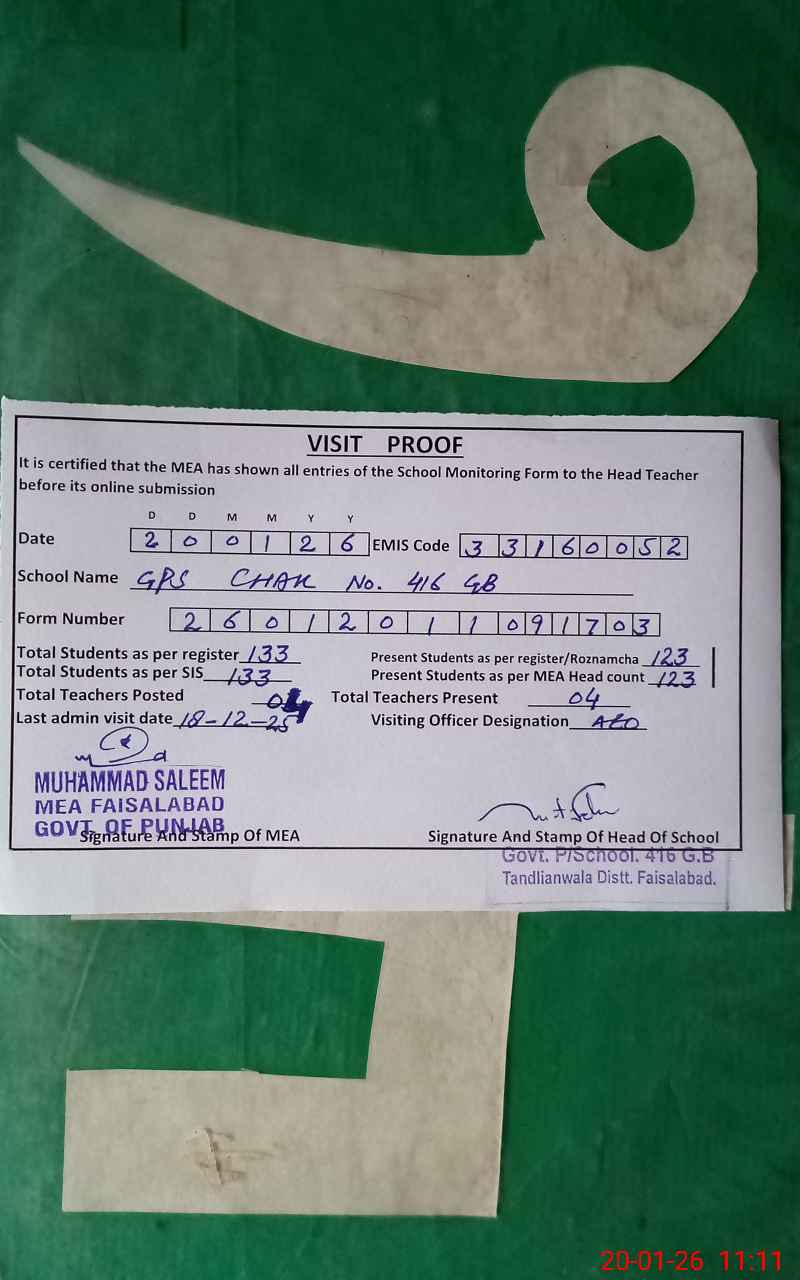 VISIT PROOF
It is certified that the MEA has shown all entries of the School Monitoring Form to the Head Teacher
before its online submission
D D M M Y Y
Date 2 0 0 1 2 6 EMIS Code 3 3 1 6 0 0 5 2
School Name GPS CHAK No. 416 GB
Form Number 2 6 0 1 2 0 1 1 0 9 1 7 0 3
Total Students as per register 133 Present Students as per register/Roznamcha 123
Total Students as per SIS 133 Present Students as per MEA Head count 123
Total Teachers Posted 04 Total Teachers Present 04
Last admin visit date 18-12-25 Visiting Officer Designation AEO
MUHAMMAD SALEEM
MEA FAISALABAD
GOVT. OF PUNJAB
Signature And Stamp Of MEA Signature And Stamp Of Head Of School
Govt. P/School. 416 G.B
Tandlianwala Distt. Faisalabad.
20-01-26 11:11